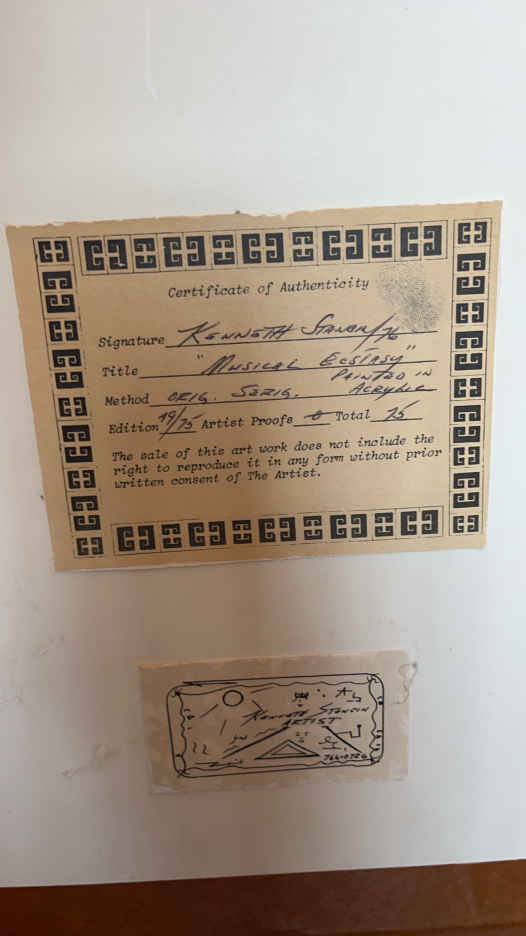 Certificate of Authenticity
Signature KENNETH STANCIN/76
Title "MUSICAL ECSTASY"
PAINTED IN
Method ORIG. SERIG. ACRYLIC
Edition 49/75 Artist Proofs 0 Total 75
The sale of this art work does not include the
right to reproduce it in any form without prior
written consent of The Artist.
KENNETH STANCIN
ARTIST